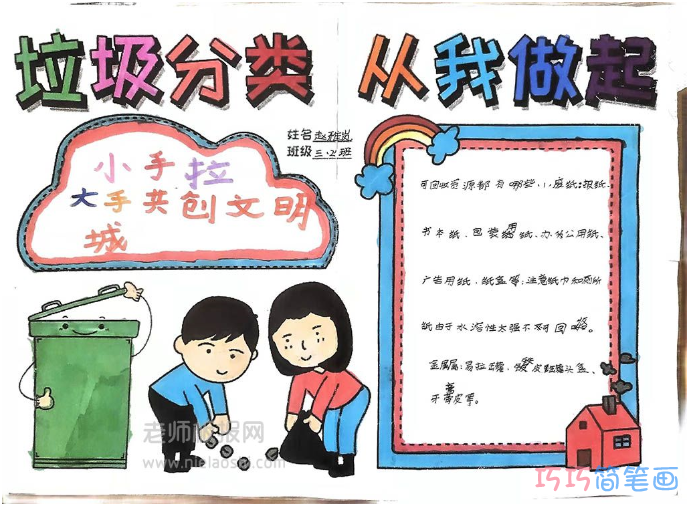 垃圾分类 从我做起
姓名
班级 三.2班
小手拉
大手共创文明
城
可回收资源都有哪些,1,废纸:报纸、
书本纸、包装用纸、办公用纸、
广告用纸、纸盒等;注意纸巾和厕所
纸由于水溶性太强不可回收。
金属属:易拉罐、铁皮罐头盒、
牙膏皮等。
老师板报网
www.nidaosai.com
巧巧简笔画